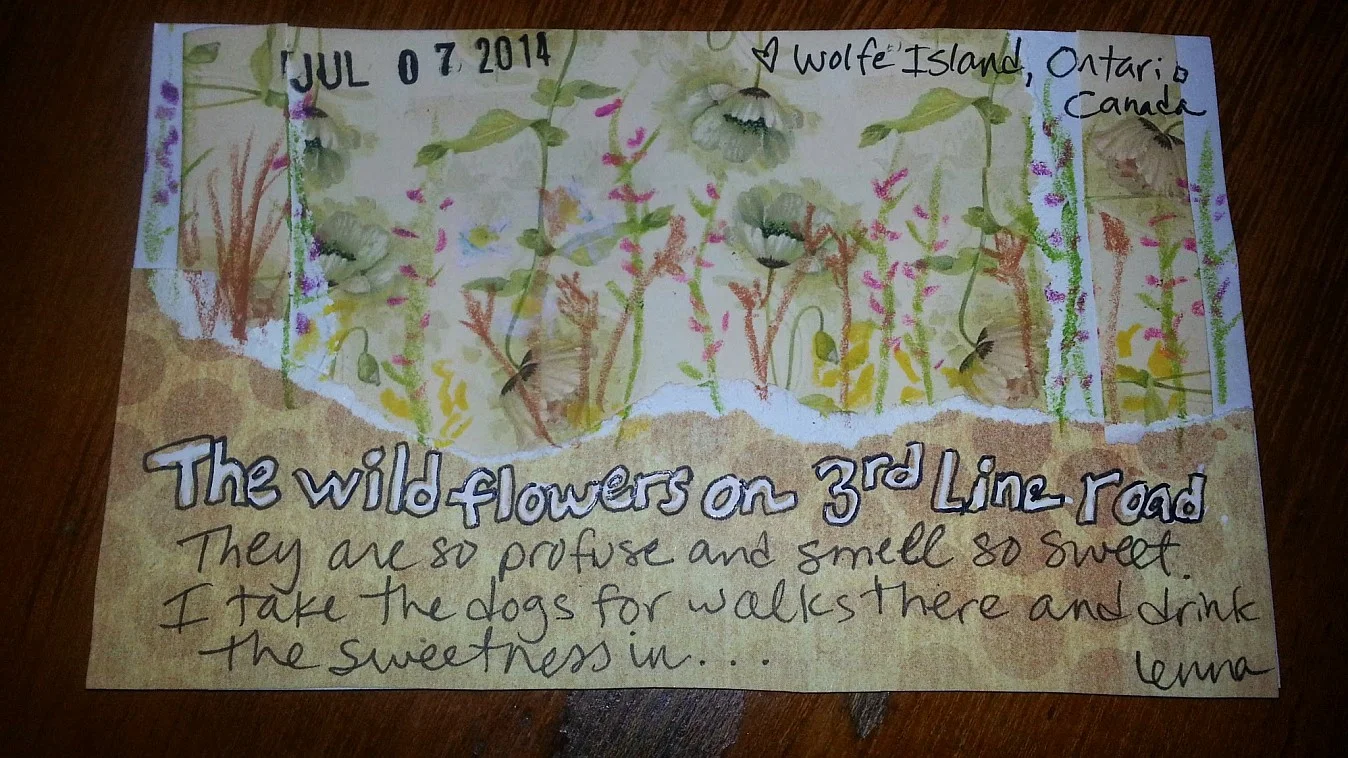 JUL 07 2014
♡ Wolfe Island, Ontario
Canada
The wildflowers on 3rd Line road
They are so profuse and smell so sweet.
I take the dogs for walks there and drink
the sweetness in...
lenna